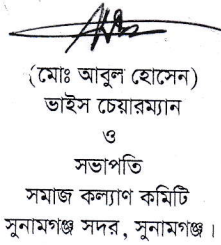 (মোঃ আবুল হোসেন)
ভাইস চেয়ারম্যান
ও
সভাপতি
সমাজ কল্যাণ কমিটি
সুনামগঞ্জ সদর, সুনামগঞ্জ।